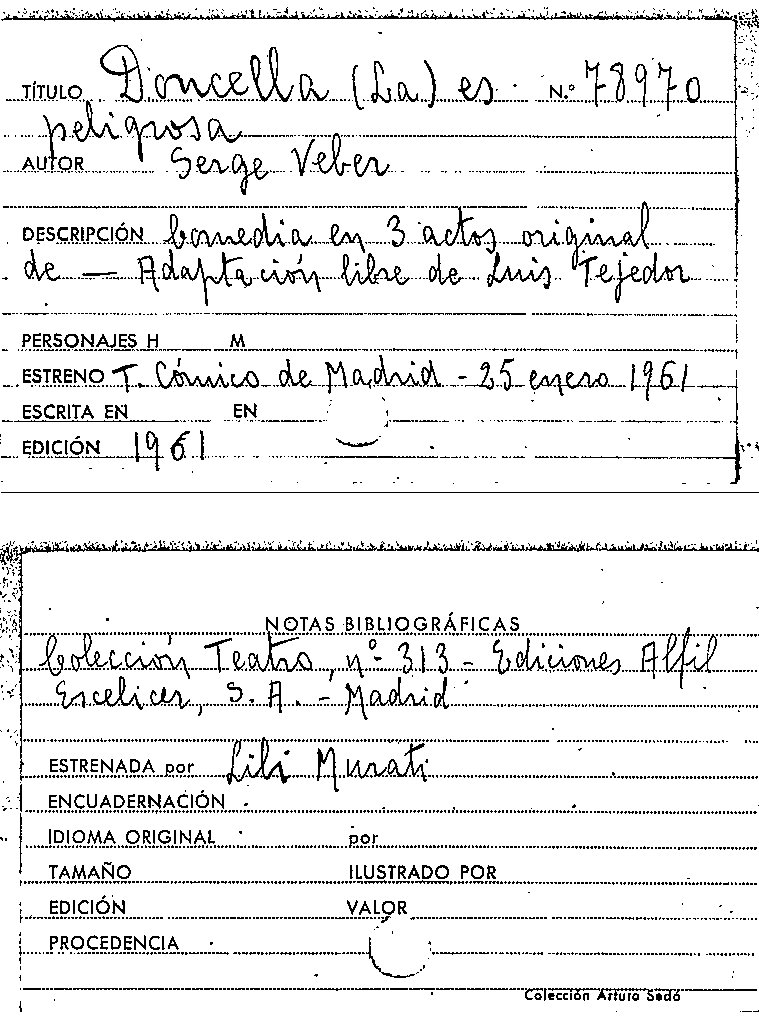 TÍTULO Doncella (La) es N.º 78970
peligrosa
AUTOR Serge Veber
DESCRIPCIÓN Comedia en 3 actos original
de — Adaptación libre de Luis Tejedor
PERSONAJES H M
ESTRENO T. Cómico de Madrid - 25 enero 1961
ESCRITA EN EN
EDICIÓN 1961
NOTAS BIBLIOGRÁFICAS
Colección Teatro, nº 313 - Ediciones Alfil
Escelicer, S. A. - Madrid
ESTRENADA por Lili Murati
ENCUADERNACIÓN
IDIOMA ORIGINAL por
TAMAÑO ILUSTRADO POR
EDICIÓN VALOR
PROCEDENCIA
Colección Arturo Sedó